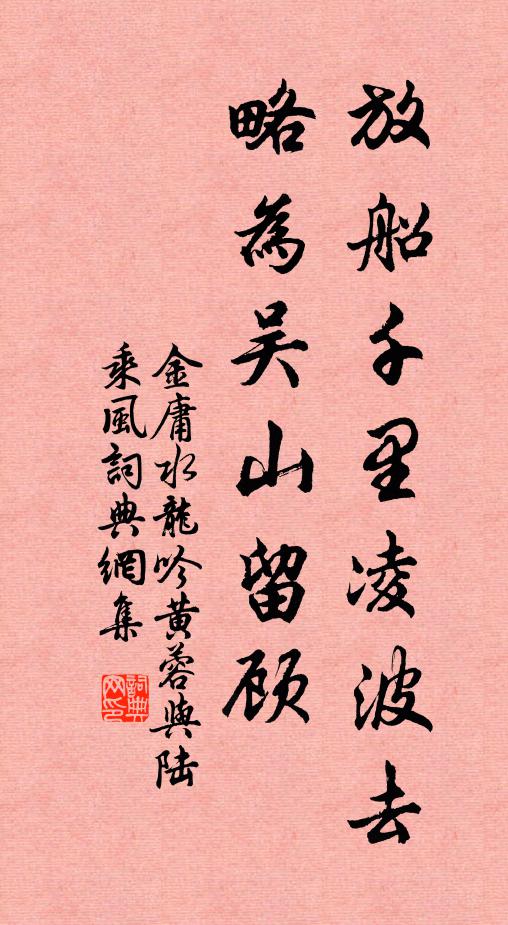 放船千里凌波去
略為吴山留顧
金庸水龍吟黄蓉與陸
乘風詞典網集
詞典網印